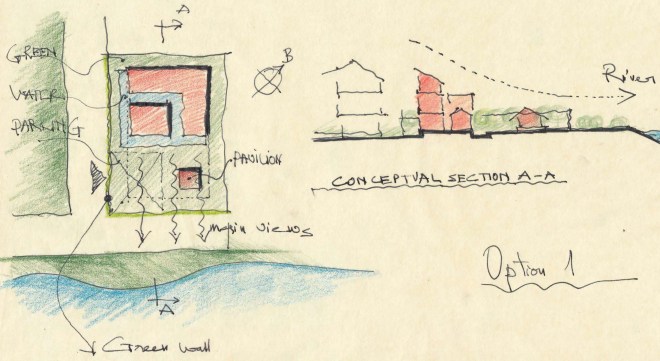 A
GREEN
WATER
PARKING
B
PAVILION
main views
A
Green wall
River
CONCEPTUAL SECTION A-A
Option 1